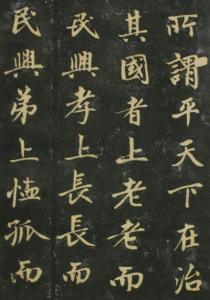 所謂平天下在治
其國者上老老而
民興孝上長長而
民興弟上恤孤而